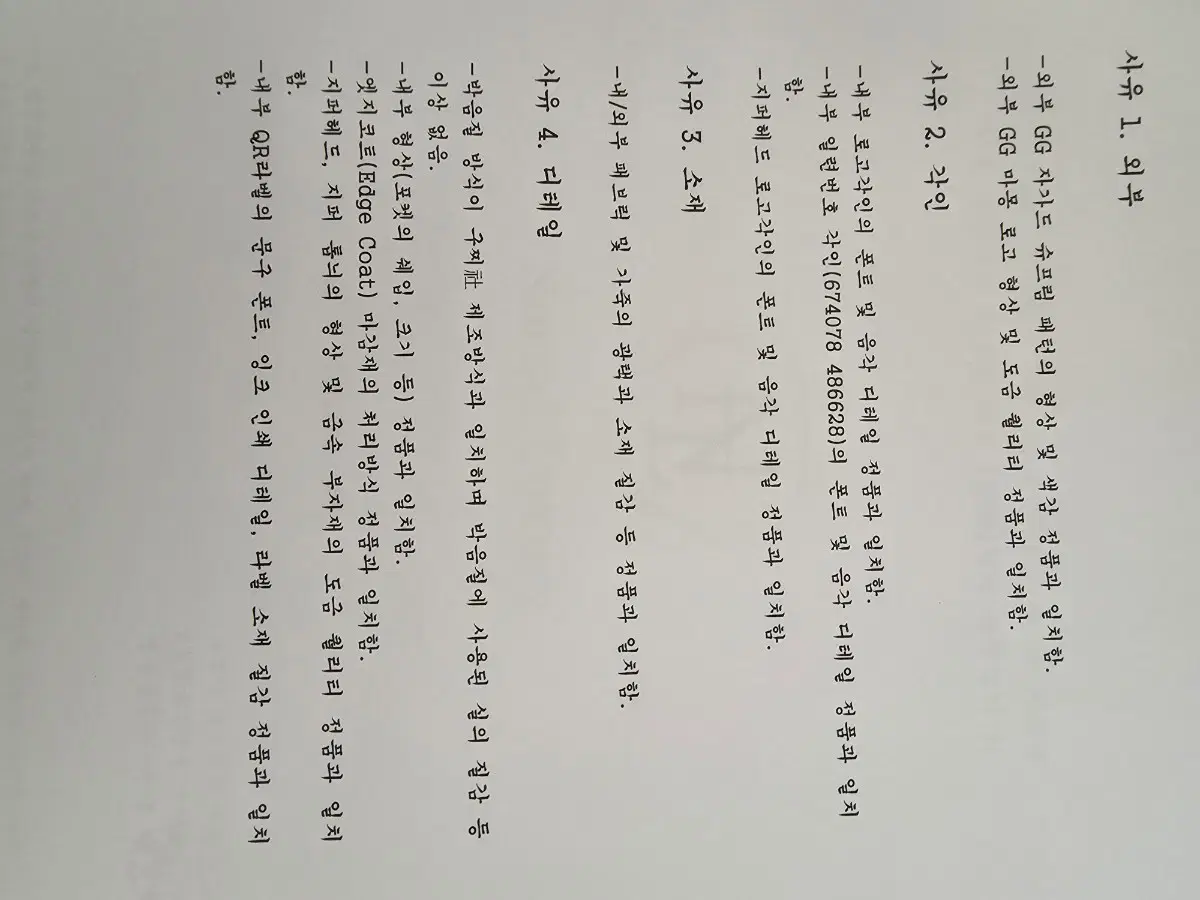 사유 1. 외부
-외부 GG 자가드 슈프림 패턴의 형상 및 색감 정품과 일치함.
-외부 GG 마몽 로고 형상 및 도금 퀄리티 정품과 일치함.
사유 2. 각인
-내부 로고각인의 폰트 및 음각 디테일 정품과 일치함.
-내부 일련번호 각인(674078 486628)의 폰트 및 음각 디테일 정품과 일치
함.
-지퍼헤드 로고각인의 폰트 및 음각 디테일 정품과 일치함.
사유 3. 소재
-내/외부 패브릭 및 가죽의 광택과 소재 질감 등 정품과 일치함.
사유 4. 디테일
-박음질 방식이 구찌社 제조방식과 일치하며 박음질에 사용된 실의 질감 등
이상 없음.
-내부 형상(포켓의 쉐입, 크기 등) 정품과 일치함.
-엣지코트(Edge Coat) 마감재의 처리방식 정품과 일치함.
-지퍼헤드, 지퍼 톱니의 형상 및 금속 부자재의 도금 퀄리티 정품과 일치
함.
-내부 QR라벨의 문구 폰트, 잉크 인쇄 디테일, 라벨 소재 질감 정품과 일치
함.